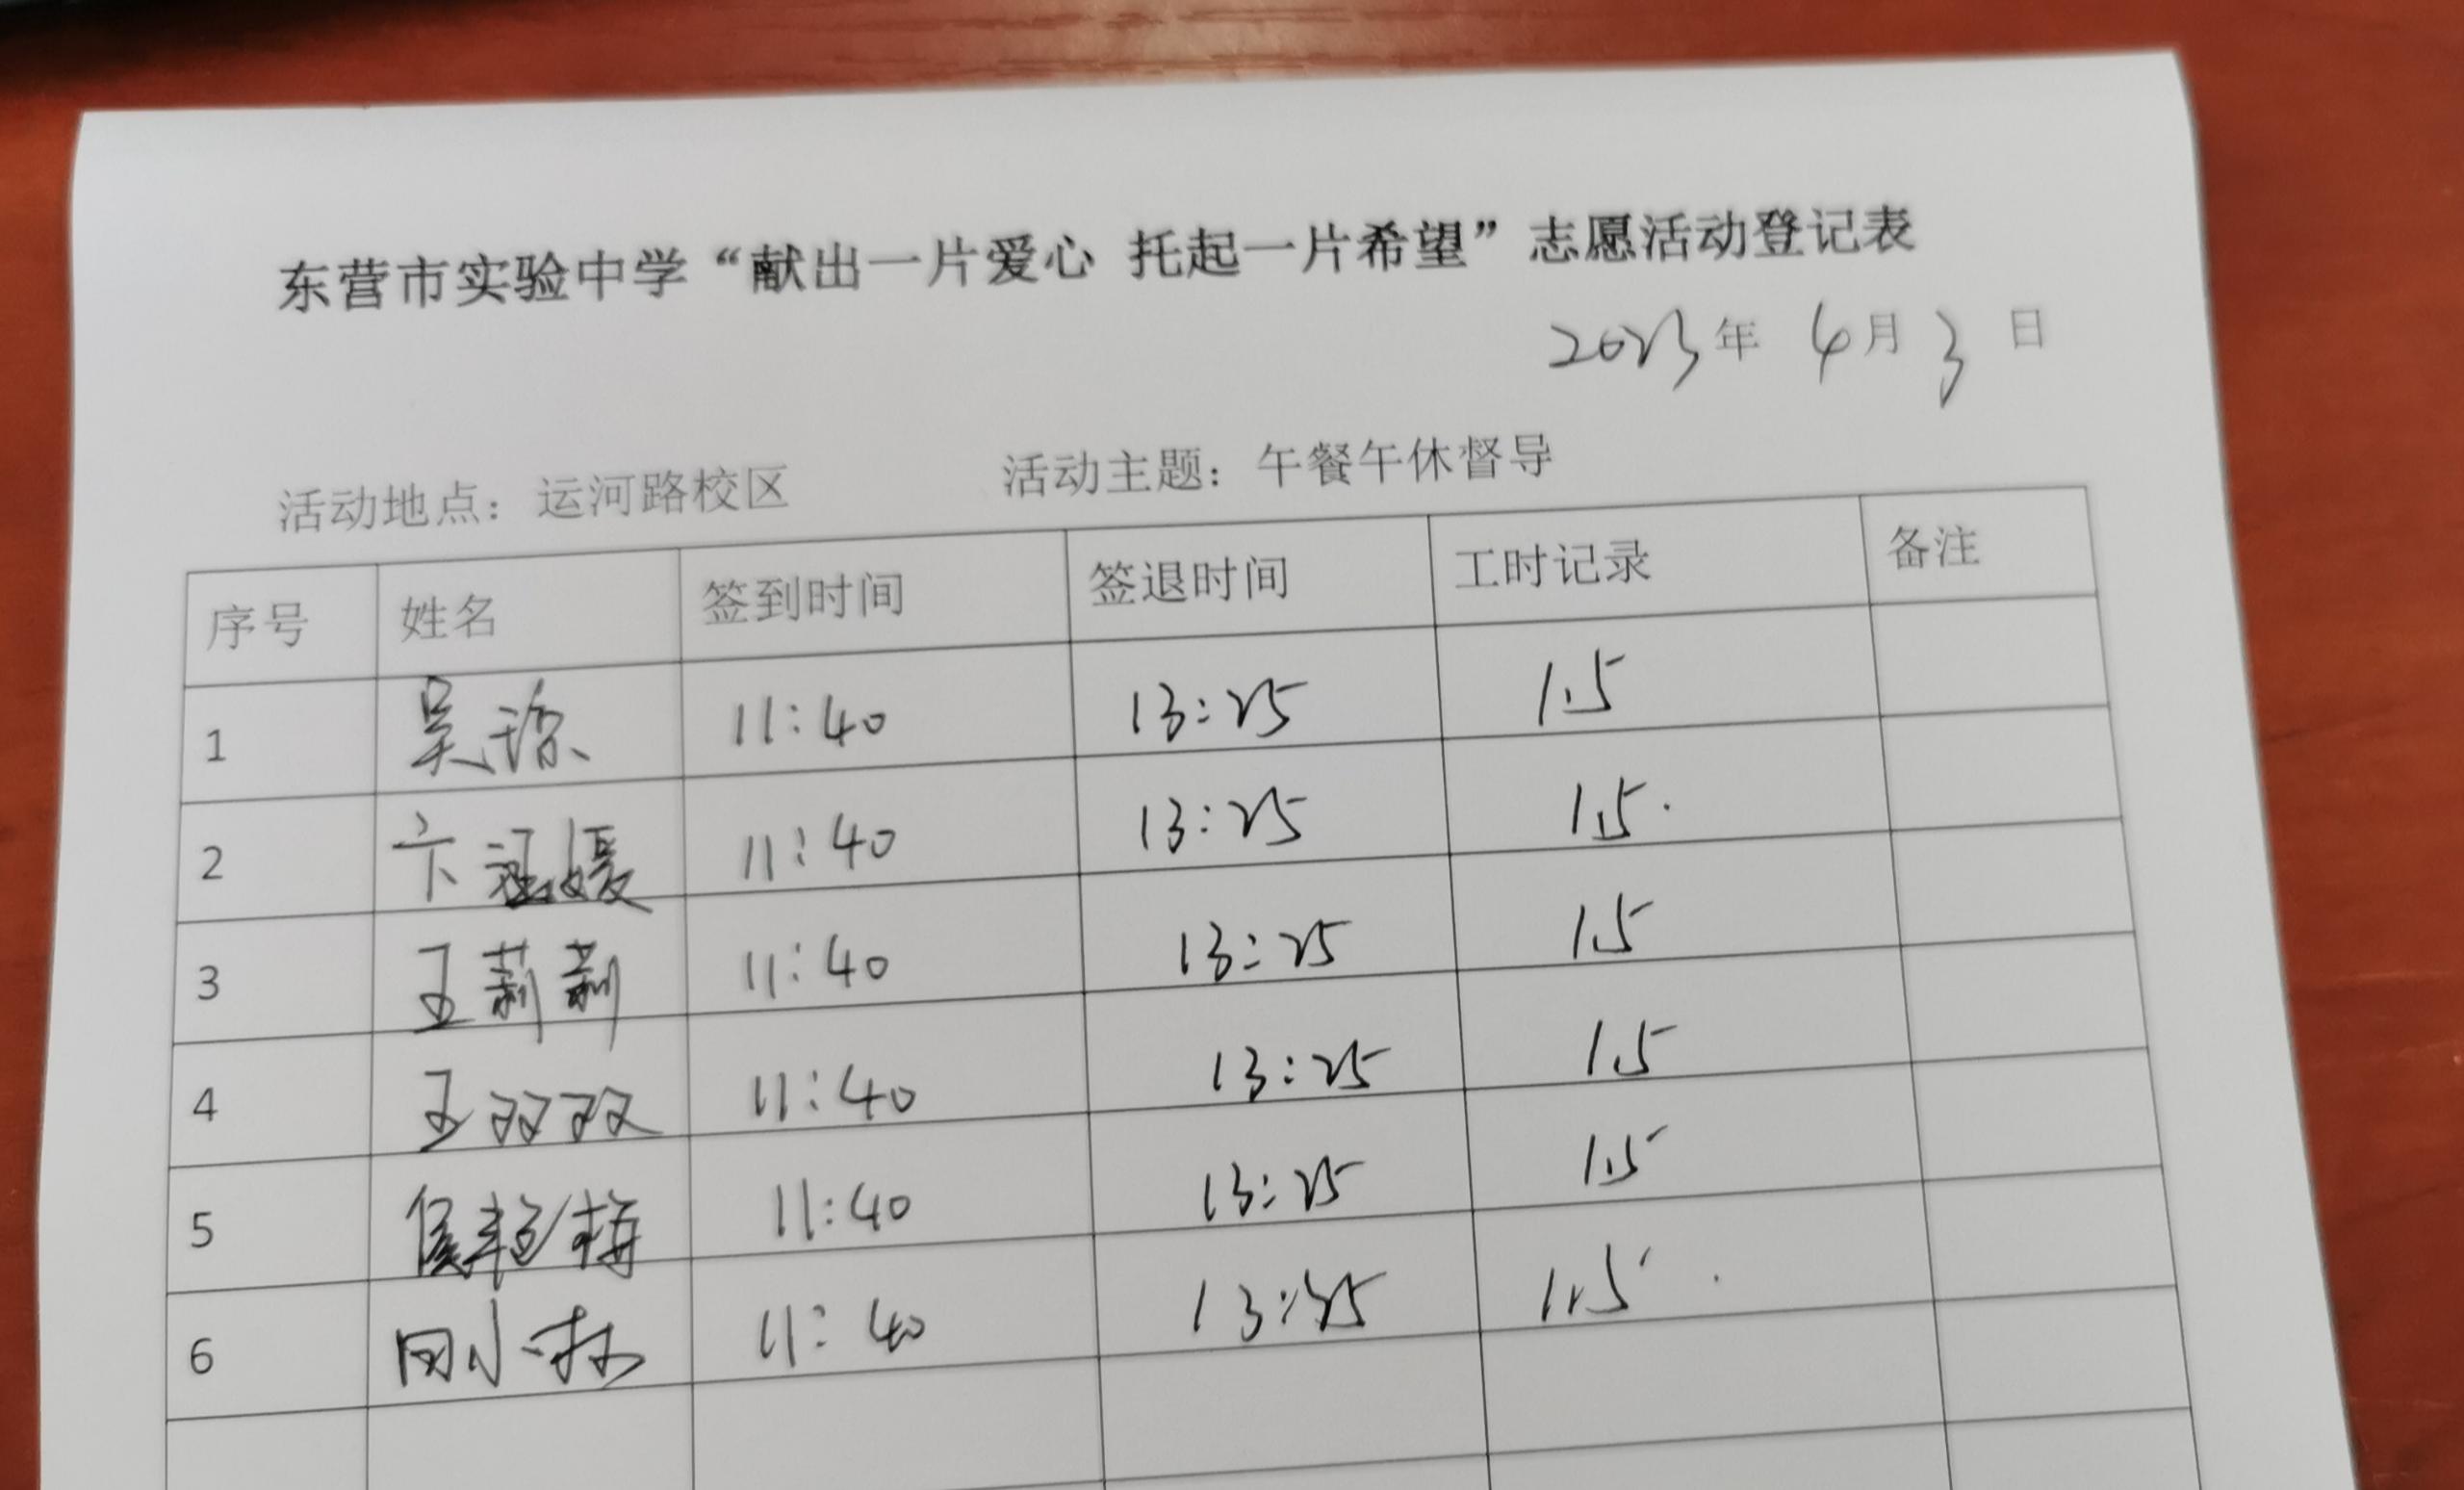 东营市实验中学“献出一片爱心 托起一片希望”志愿活动登记表
2023年 4月3 日
活动地点：运河路校区 活动主题：午餐午休督导
序号 姓名 签到时间 签退时间 工时记录 备注
1 吴琼 11:40 13:25 1.5
2 卞涵媛 11:40 13:25 1.5.
3 王莉莉 11:40 13:25 1.5
4 王双双 11:40 13:25 1.5
5 侯艳梅 11:40 13:25 1.5
6 小林 11:40 1.5